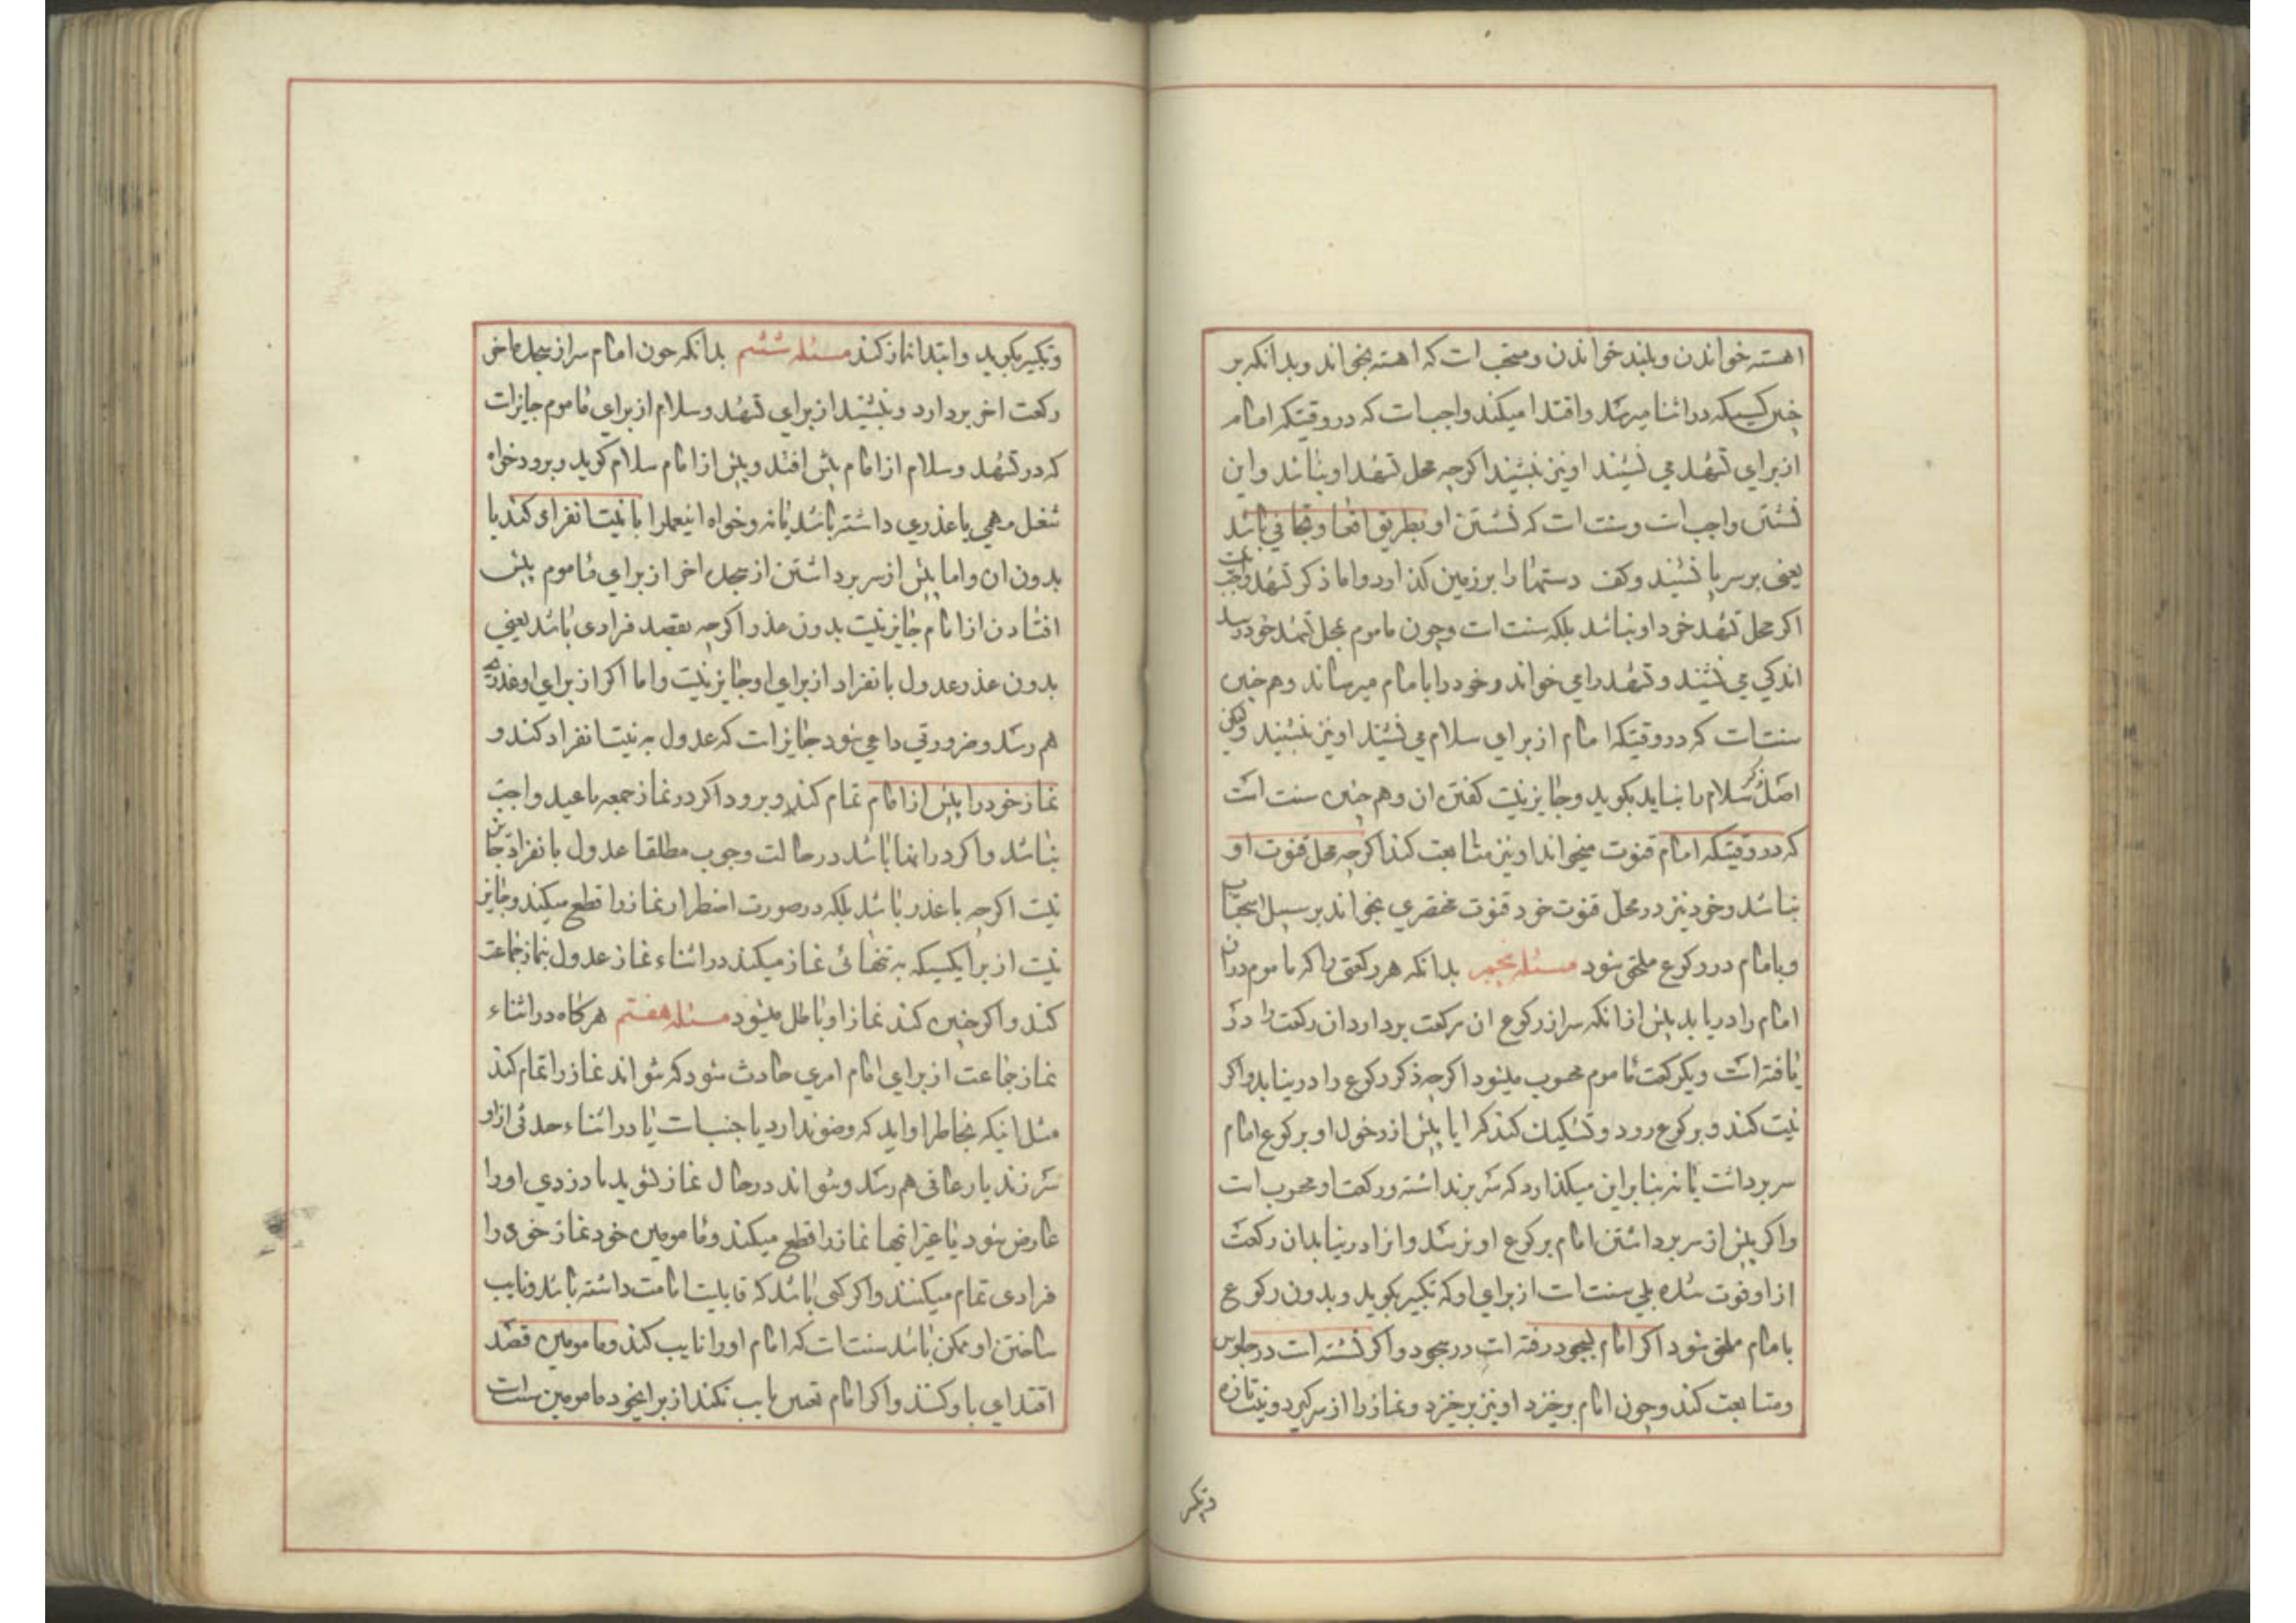 اهسته خواندن و بلند خواندن و مستحب است که اهسته بخواند و بدانکه بر
چنین کسیکه در اثنا میرسد و اقتدا میکند واجب است که در وقتیکه امام
از برای تشهد می نشیند او نیز بنشیند اگرچه محل تشهد او نباشد و این
نشستن واجب است و سنت است که نشستن او بطریق اقعا و تجافی باشد
یعنی بر سر پا نشیند و کف دستها را بر زمین گذارد و اما ذکر تشهد واجب نیست
اگر محل تشهد خود او نباشد بلکه سنت است و چون ماموم بمحل تشهد خود رسد
اندکی می نشیند و تشهد را می خواند و خود را بامام میرساند و هم چنین
سنت است که در وقتیکه امام از برای سلام می نشیند او نیز بنشیند ولکن
اصل ذکر سلام را نباید بگوید و جایز نیست گفتن ان و هم چنین سنت است
که در وقتیکه امام قنوت میخواند او نیز متابعت کند اگرچه محل قنوت او
نباشد و خود نیز در محل قنوت خود قنوت مختصری بخواند بر سبیل استحباب
و بامام در رکوع ملحق شود مسئله پنجم بدانکه هر رکعتی را که ماموم در ان
امام را دریابد پیش از انکه سر از رکوع ان رکعت بردارد ان رکعت را درک
یافته است و یکرکعت ماموم محسوب میشود اگرچه ذکر رکوع را درنیابد و اگر
نیت کند و برکوع رود و تشکیک کند که ایا پیش از دخول او برکوع امام
سر برداشت یا نه بنابراین میگذارد که سر برنداشته و رکعت او محسوب است
و اگر پیش از سر برداشتن امام برکوع او نرسد و انرا درنیابد ان رکعت
از او فوت شده بلی سنت است از برای او که تکبیر بگوید و بدون رکوع
بامام ملحق شود اگر امام بسجود رفته است در سجود و اگر نشسته است در جلوس
و متابعت کند و چون امام برخیزد او نیز برخیزد و نماز را از سر گیرد و نیت تازه
و تکبیر
و تکبیر بگوید و ابتدا نماز کند مسئله ششم بدانکه چون امام سر از سجده اخر
رکعت اخر بردارد و بنشیند از برای تشهد و سلام از برای ماموم جایز است
که در تشهد و سلام از امام پیش افتد و پیش از امام سلام گوید و برود خواه
شغل مهمی یا عذری داشته باشد یا نه و خواه اینعمل را با نیت انفرادی کند یا
بدون ان و اما پیش از سر برداشتن از سجده اخر از برای ماموم پیش
افتادن از امام جایز نیست بدون عذر اگرچه بقصد فرادی باشد یعنی
بدون عذر عدول بانفراد از برای او جایز نیست و اما اگر از برای او عذری
هم رسد و ضرورتی داعی شود جایز است که عدول به نیت انفراد کند و
نماز خود را پیش از امام تمام کند و برود اگر در نماز جمعه یا عید واجب
نباشد و اگر در انها باشد در حالت وجوب مطلقا عدول بانفراد جایز
نیست اگرچه با عذر باشد بلکه در صورت اضطرار نماز را قطع میکند و جایز
نیست از برای کسیکه به تنهائی نماز میکند در اثناء نماز عدول بنماز جماعت
کند و اگر چنین کند نماز او باطل میشود مسئله هفتم هرگاه در اثناء
نماز جماعت از برای امام امری حادث شود که نتواند نماز را تمام کند
مثل اینکه بخاطر او اید که وضو ندارد یا جنب است یا در اثناء حدثی از او
سر زند یا رعافی هم رسد و نتواند در حال نماز بشوید یا دزدی او را
عارض شود یا غیر انها نماز را قطع میکند و مامومین خود نماز خود را
فرادی تمام میکنند و اگر کسی باشد که قابلیت امامت داشته باشد و نایب
ساختن او ممکن باشد سنت است که امام او را نایب کند و مامومین قصد
اقتدای باو کنند و اگر امام تعیین نایب نکند از برای خود مامومین سنت است